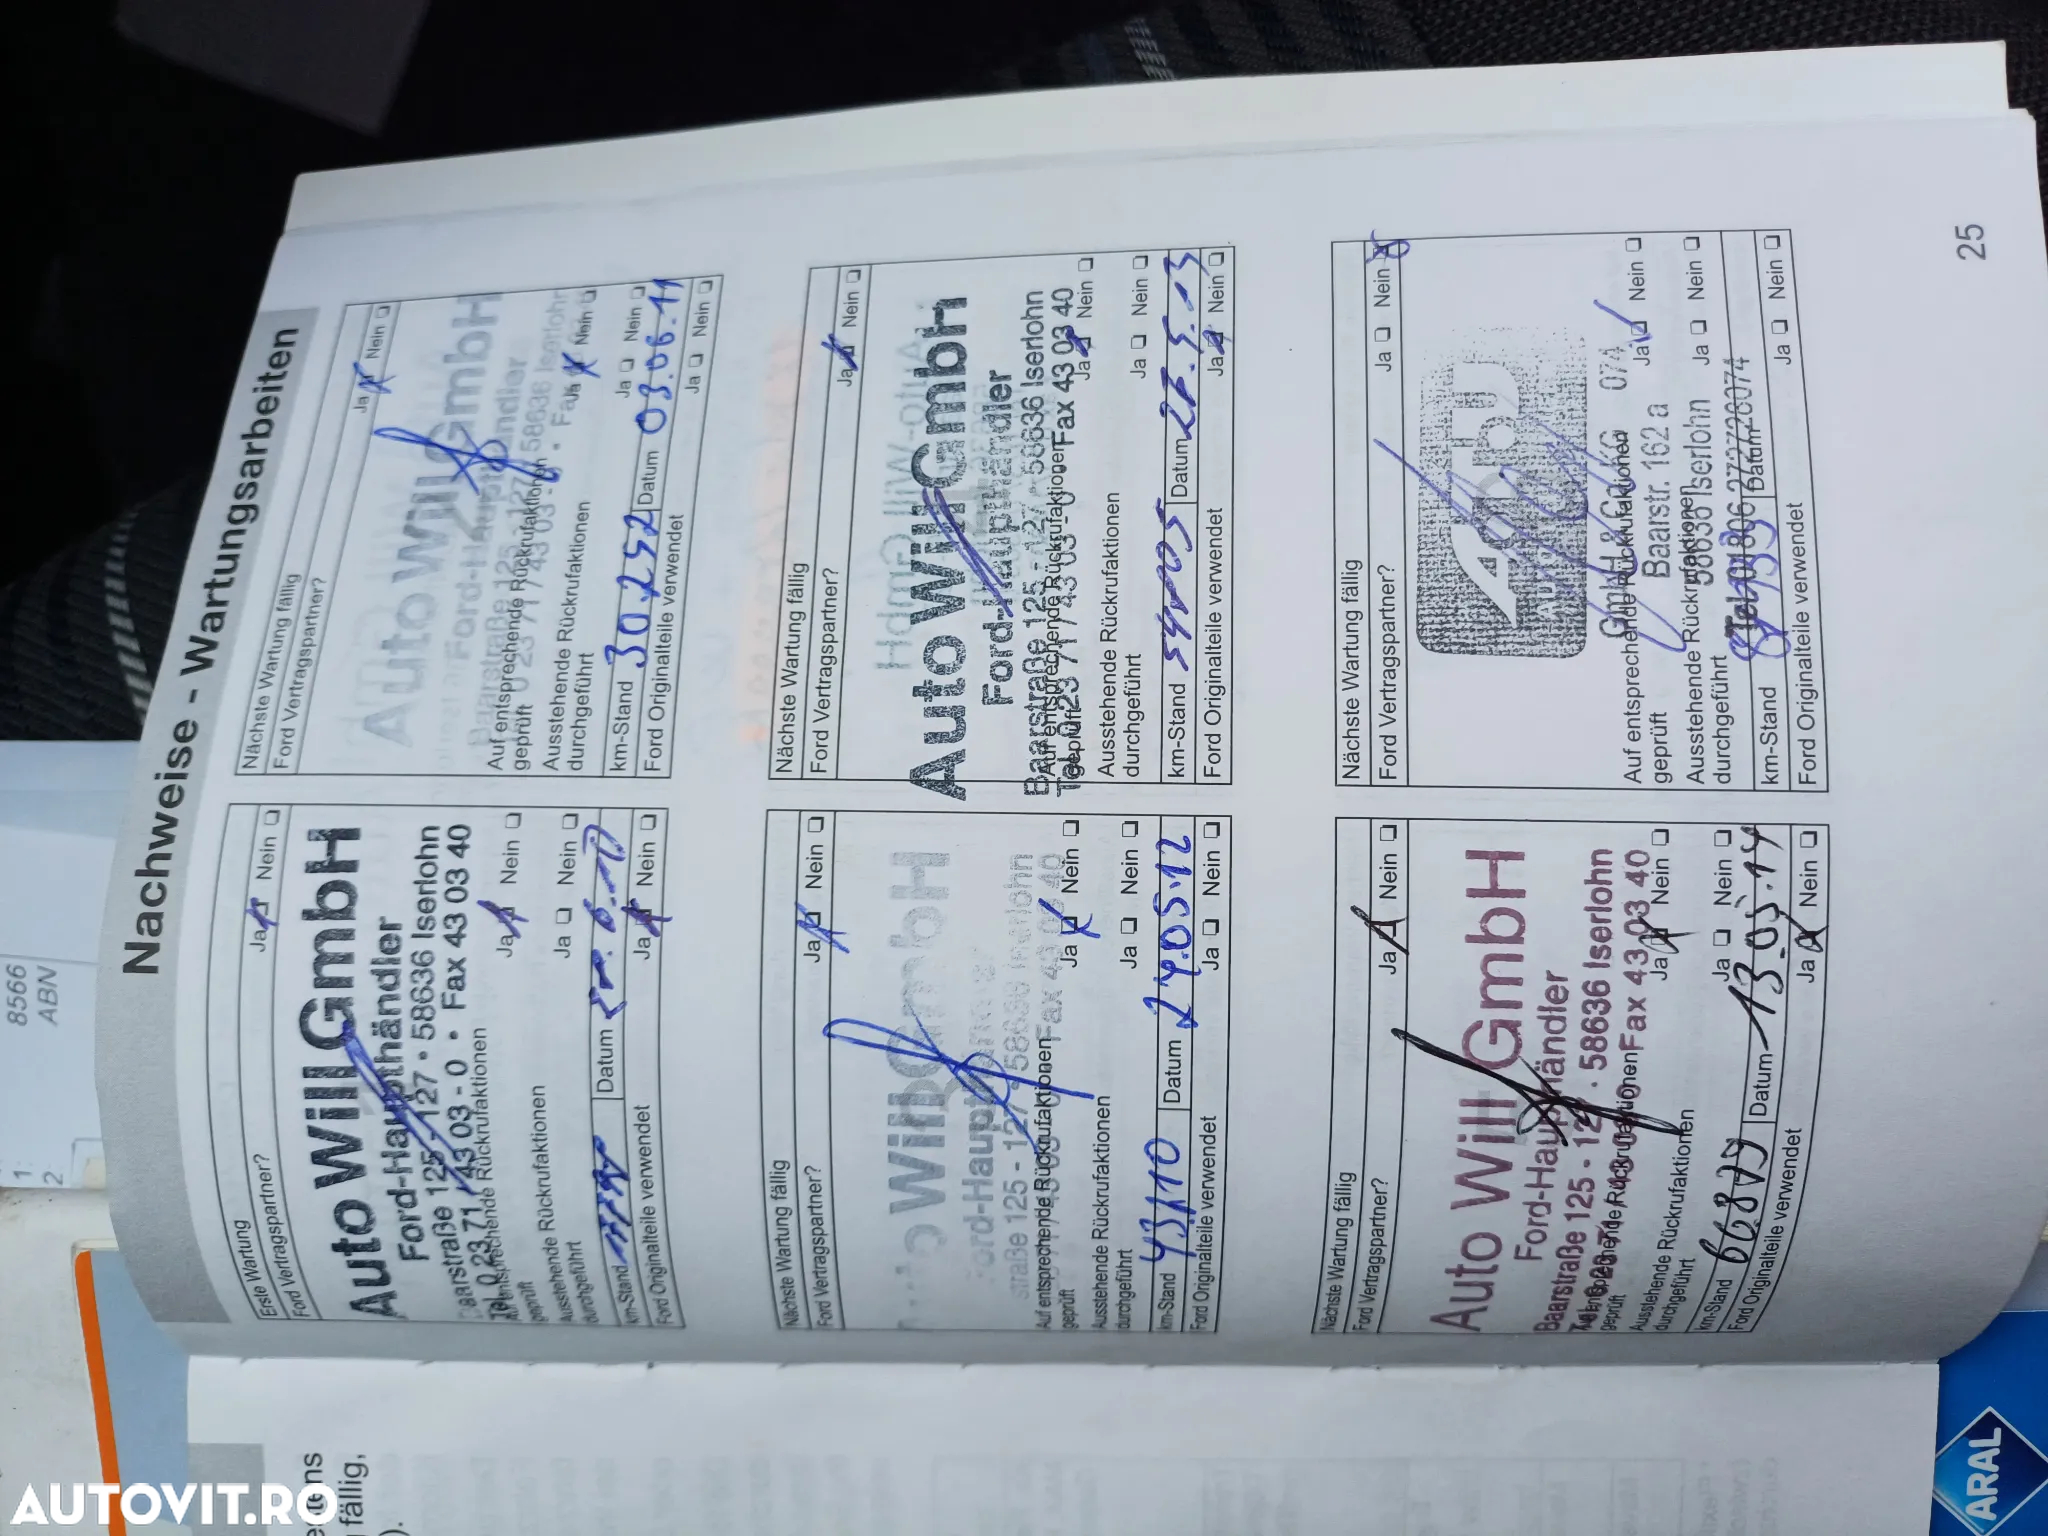 Nachweise - Wartungsarbeiten
Erste Wartung
Ford Vertragspartner?
Ja Nein
Auto Will GmbH
Ford-Haupthändler
Baarstraße 125 - 127 • 58636 Iserlohn
Tel. 0 23 71 / 43 03 - 0 • Fax 43 03 40
Auf entsprechende Rückrufaktionen
geprüft
Ja Nein
Ausstehende Rückrufaktionen
durchgeführt
Ja Nein
km-Stand
Datum
Ford Originalteile verwendet
Ja Nein
Nächste Wartung fällig
Ford Vertragspartner?
Ja Nein
Auto Will GmbH
Ford-Haupthändler
Baarstraße 125 - 127 58636 Iserlohn
0 23 71 / 43 03 - 0 • Fax
Auf entsprechende Rückrufaktionen
geprüft
Ja Nein
Ausstehende Rückrufaktionen
durchgeführt
Ja Nein
km-Stand 30.252 Datum 03.06.11
Ford Originalteile verwendet
Ja Nein
Nächste Wartung fällig
Ford Vertragspartner?
Ja Nein
Will GmbH
Ford-Haupthändler
straße 125 - 127 58636 Iserlohn
Fax 43 03 40
Auf entsprechende Rückrufaktionen
geprüft
Ja Nein
Ausstehende Rückrufaktionen
durchgeführt
Ja Nein
km-Stand 43110 Datum 24.05.12
Ford Originalteile verwendet
Ja Nein
Nächste Wartung fällig
Ford Vertragspartner?
Ja Nein
Auto Will GmbH
Ford-Haupthändler
Baarstraße 125 - 127 • 58636 Iserlohn
Tel. 0 23 71 / 43 03 - 0 Fax 43 03 40
Auf entsprechende Rückrufaktionen
geprüft
Ja Nein
Ausstehende Rückrufaktionen
durchgeführt
Ja Nein
km-Stand Datum
Ford Originalteile verwendet
Ja Nein
Nächste Wartung fällig
Ford Vertragspartner?
Ja Nein
Auto Will GmbH
Ford-Haupthändler
Baarstraße 125 - 127 • 58636 Iserlohn
Fax 43 03 40
Auf entsprechende Rückrufaktionen
geprüft
Ja Nein
Ausstehende Rückrufaktionen
durchgeführt
Ja Nein
km-Stand 66.879 Datum 13.05.14
Ford Originalteile verwendet
Ja Nein
Nächste Wartung fällig
Ford Vertragspartner?
Ja Nein
GmbH & Co KG 074
Baarstr. 162 a
58636 Iserlohn
Auf entsprechende Rückrufaktionen
geprüft
Ja Nein
Ausstehende Rückrufaktionen
durchgeführt
Ja Nein
km-Stand Datum
Ford Originalteile verwendet
Ja Nein
25
8566
ABN
1:
2
fällig,
ARAL
AUTOVIT.RO